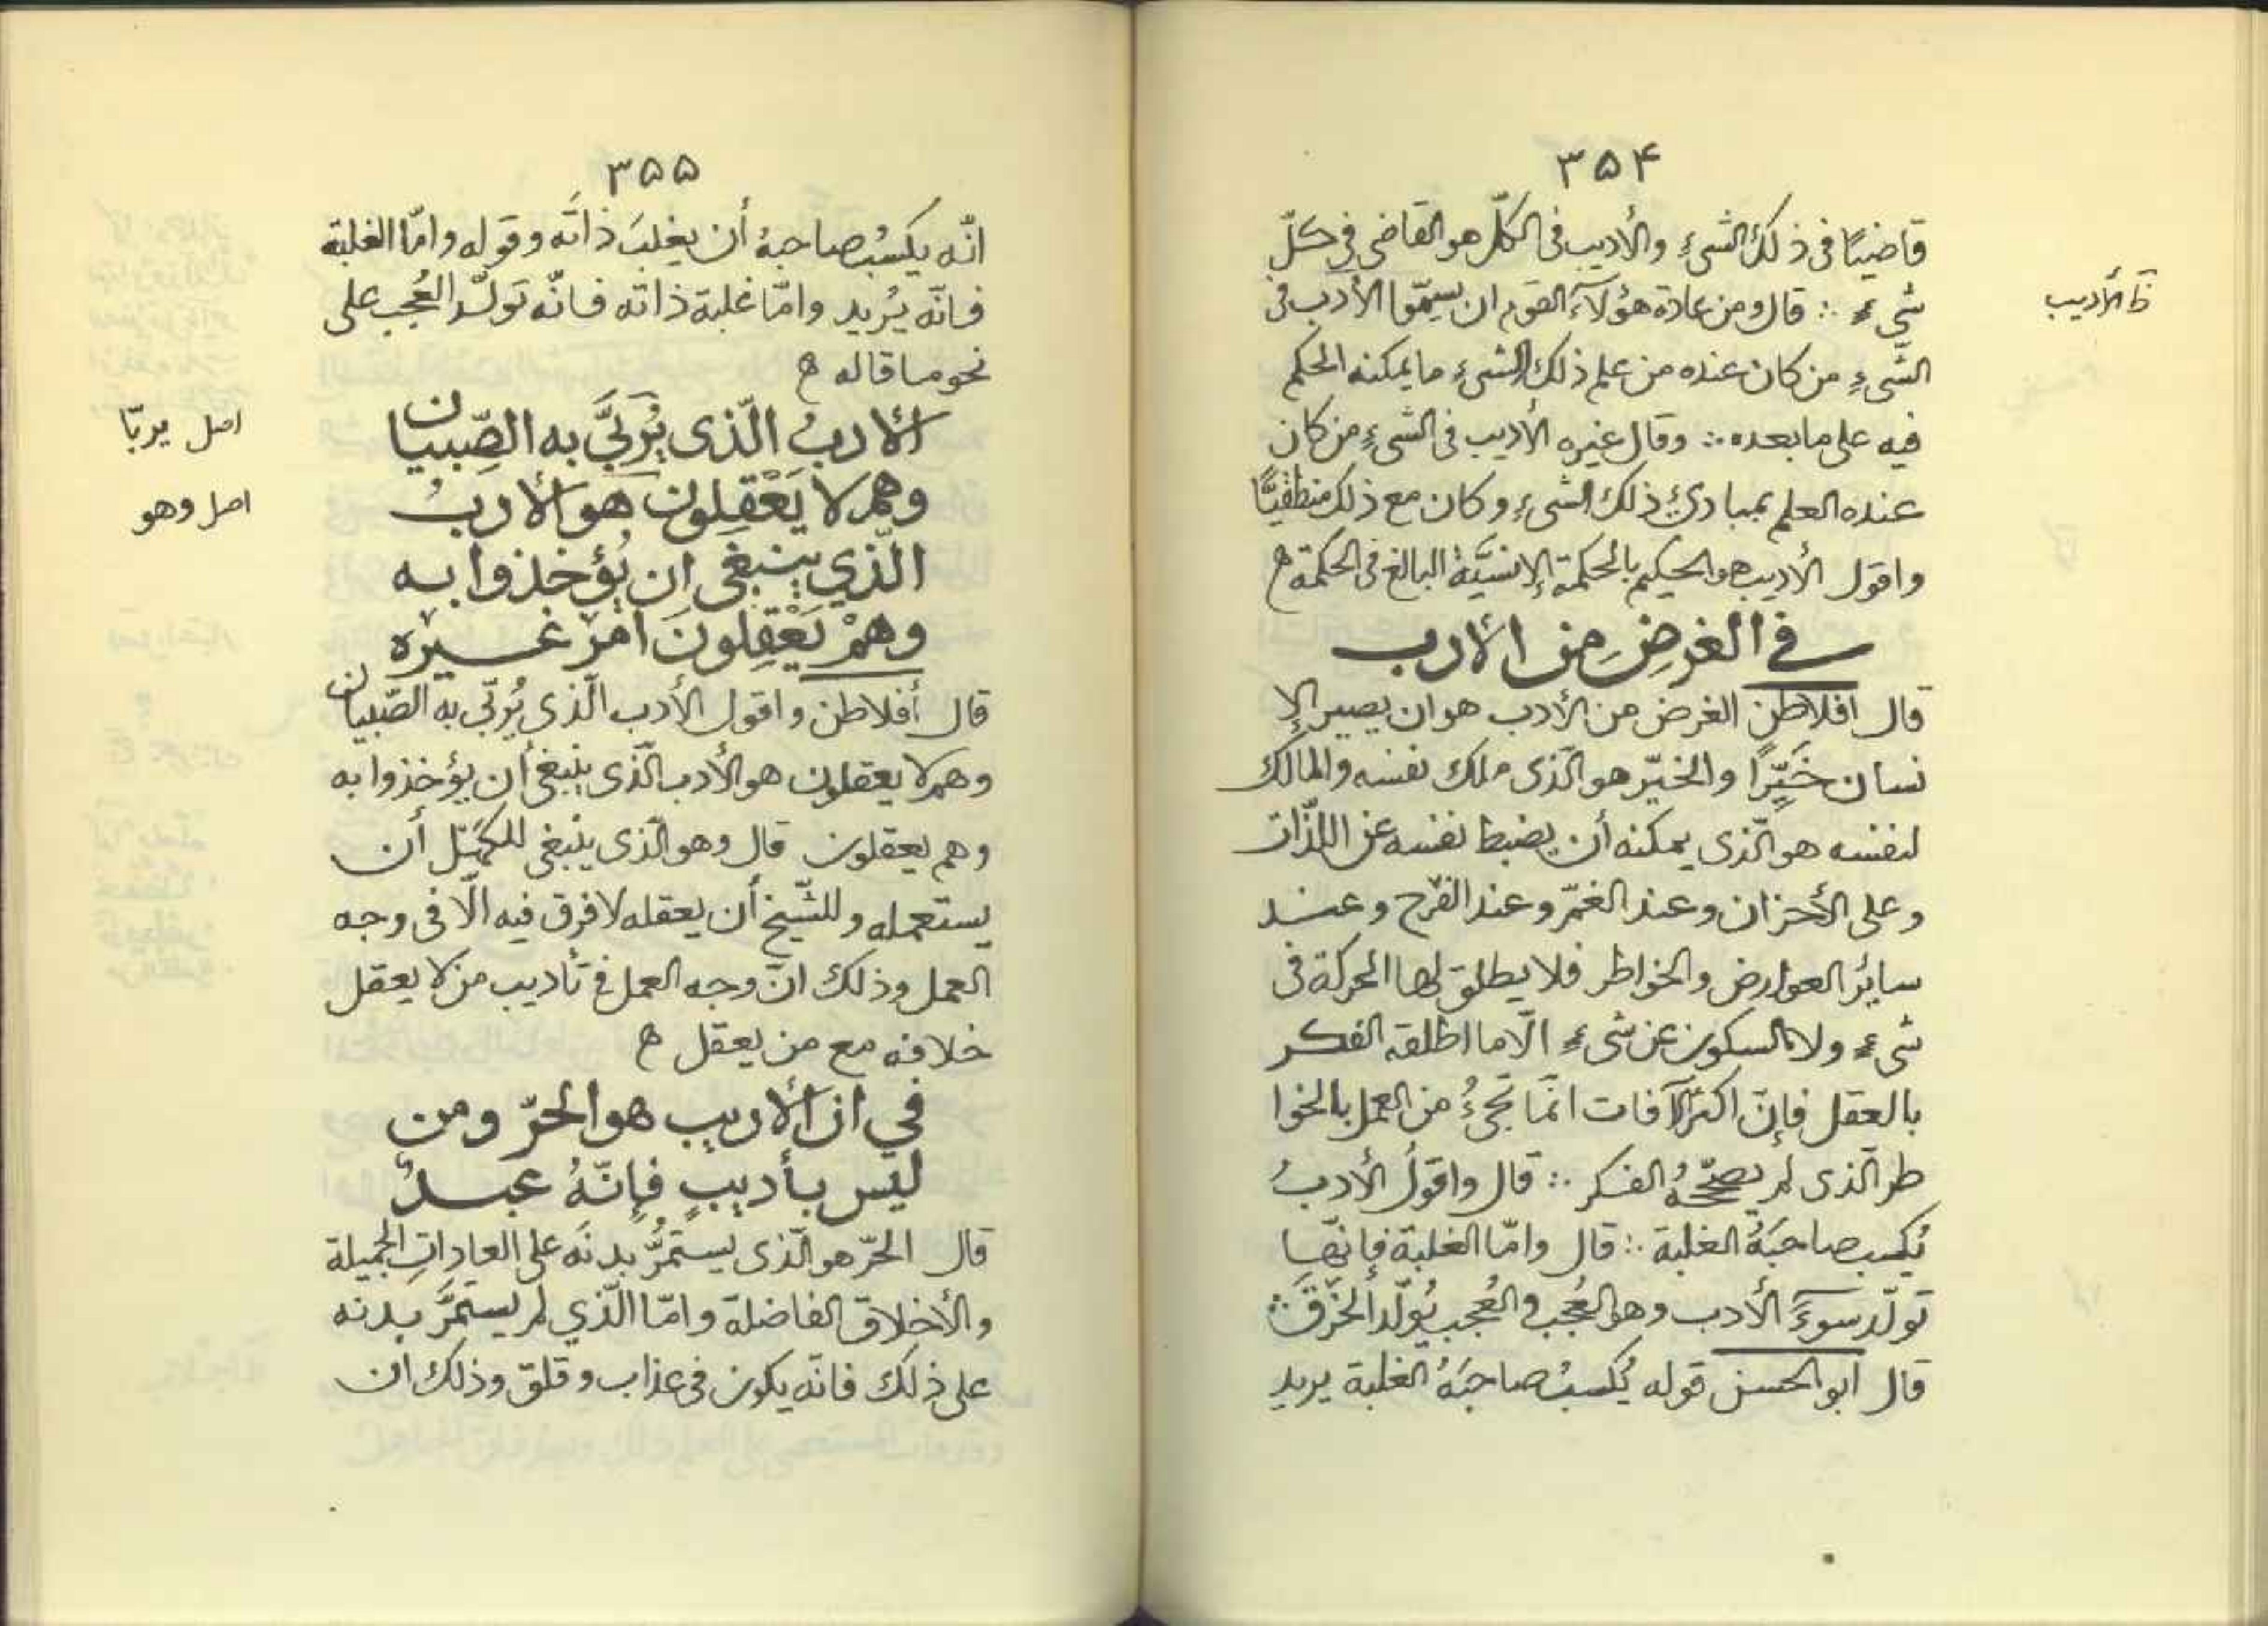 ۳۵۴
قاضيًا فى ذلك الشىءِ والأديب فى الكلّ هو القاضى فى كلّ
شىءٍ ∴ قال ومن عادة هؤلآء القوم ان يسمّوا الأدب فى
ظ الأديب
الشىءِ من كان عنده من علم ذلك الشىءِ ما يمكنه الحكم
فيه على ما بعده ∴ وقال غيره الأديب فى الشىءِ من كان
عنده العلم بمبادئ ذلك الشىءِ وكان مع ذلك منطقيًّا
واقول الأديب هو الحكيم بالحكمة الإنسيَّة البالغ فى الحكمة ح
فى الغرضِ من الأدب
قال افلاطن الغرض من الأدب هو ان يصير الإ
نسان خَيِّرًا والخيّر هو الّذى ملك نفسه والمالك
لنفسه هو الّذى يمكنه أن يضبط نفسه عن اللذّات
وعلى الأحزان وعند الغمّ وعند الفرح وعند
سائر العوارض والخواطر فلا يطلق لها الحركة فى
شىءٍ ولا السكون عن شىءٍ الّا ما اطلقه الفكر
بالعقل فإنّ اكثر الآفات انّما تجىءُ من العمل بالخوا
طر الّذى لم يصحّحهُ الفكر ∴ قال واقولُ الأدبُ
يُكسب صاحبَهُ الغلبة ∴ قال وامّا الغلبة فإنّها
تولّد سوءَ الأدب وهو العُجب والعُجب يُولّد الخُرْقَ ∴
قال ابو الحسن قوله يُكسبُ صاحبَهُ الغلبة يريد
۳۵۵
انّه يكسبُ صاحبهُ أن يغلبَ ذاتَه وقوله وامّا الغلبة
فانّه يُريد وامّا غلبة ذاته فانّه تولّد العُجب على
نحو ما قاله ح
الأدبُ الّذى يُربَّى به الصِّبيان
اصل يربّا
وهم لا يَعْقِلون هو الأدبُ
اصل وهو
الّذي ينبغى ان يُؤخذوا به
وهمْ يَعْقِلونَ امرَ غيره
قال أفلاطن واقول الأدب الّذى يُربّى به الصّبيان
وهم لا يعقلون هو الأدب الّذى ينبغى أن يؤخذوا به
وهم يعقلون قال وهو الّذى ينبغى للكهل أن
يستعمله وللشّيخ أن يعقله لا فرق فيه الّا فى وجه
العمل وذلك انّ وجه العمل فى تأديب من لا يعقل
خلافه مع من يعقل ح
في ان الأديب هو الحرّ ومن
ليس بأديبٍ فإنّهُ عبدٌ
قال الحرّ هو الّذى يستمرُّ بدنَه على العاداتِ الجميلة
والأخلاق الفاضلة وامّا الّذي لم يستمرَّ بدنه
على ذلك فانّه يكون فى عذاب وقلق وذلك ان